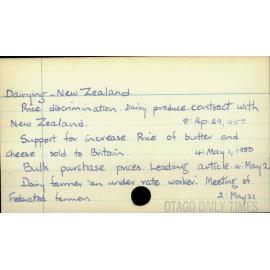 Dairying - New Zealand
Price discrimination. Dairy produce contract with
New Zealand. 8: Ap. 29, 1950
Support for increase Price of butter and
cheese sold to Britain. 4: May 1, 1950
Bulk purchase prices. Leading article. 4: May 2
Dairy farmer an under rate worker. Meeting of
Federated farmers 2: May 31
OTAGO DAILY TIMES